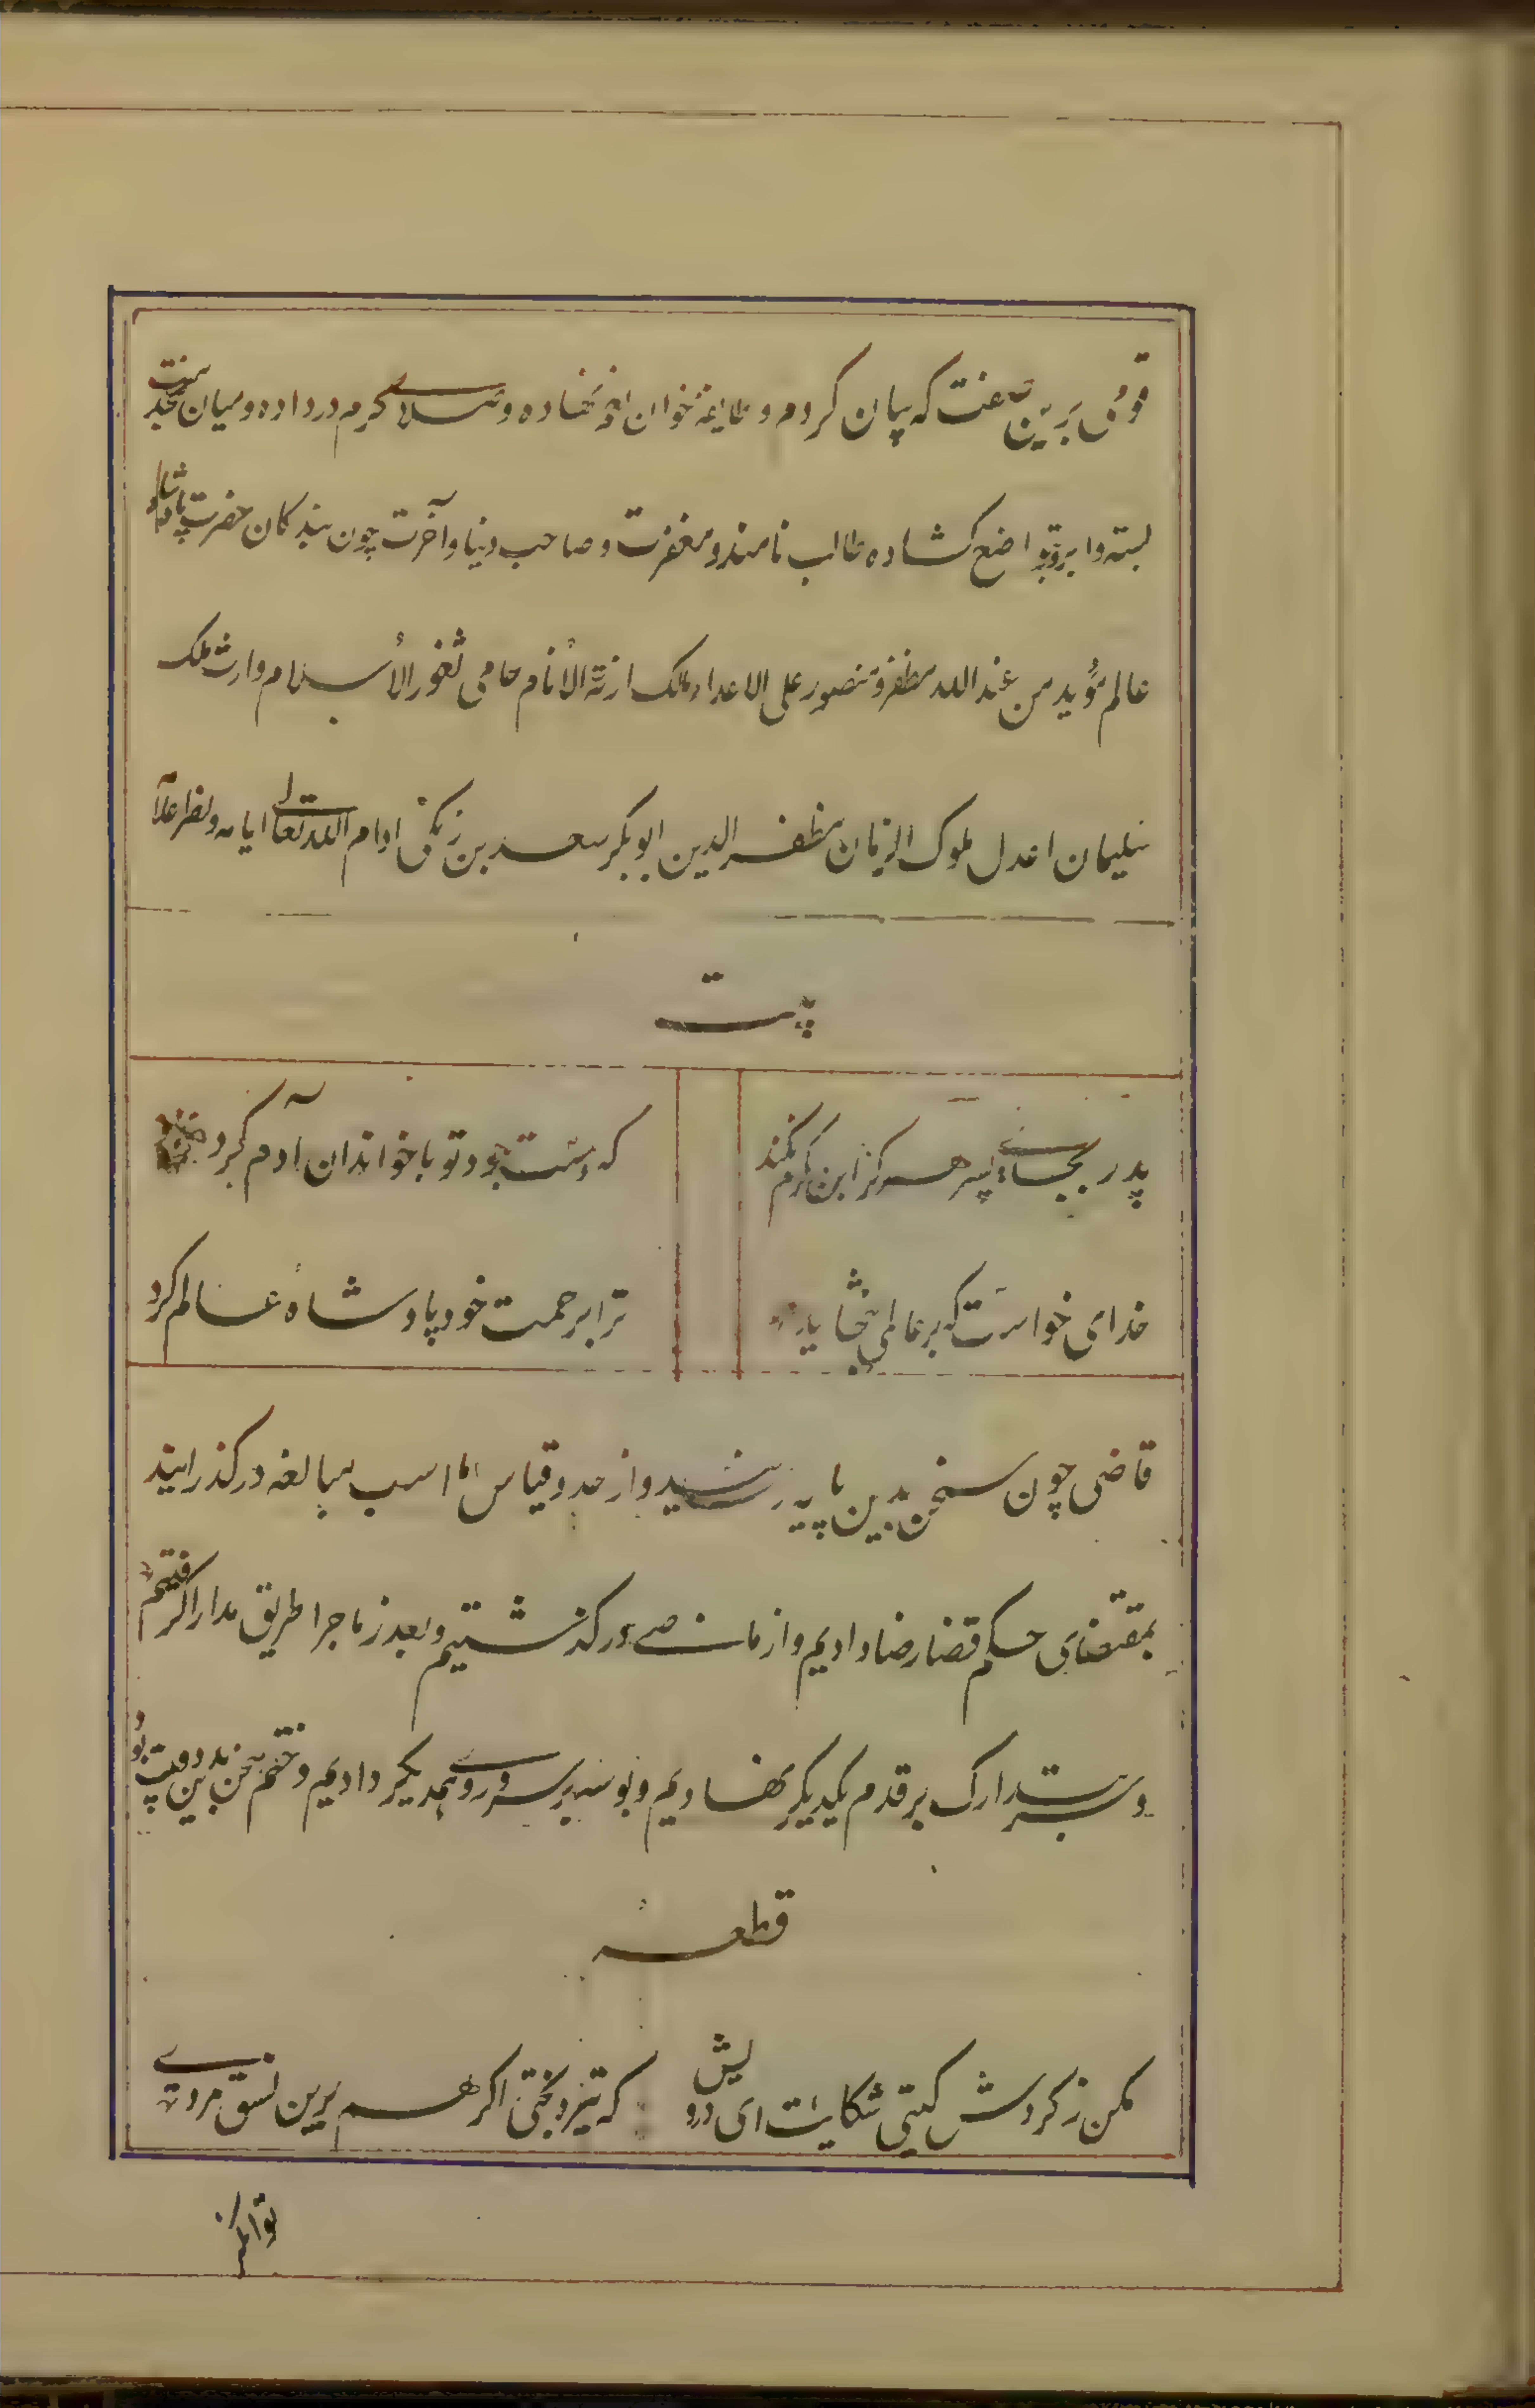 قومی برین صفت که بیان کردم و طایفهٔ خوان نهاده و صلای کرم در داده و میان بخدمت
بسته و ابرو بتواضع کشاده طالب نامند و مغفرت و صاحب دنیا و آخرت چون بندکان حضرت پادشاه
عالم مؤید من عند الله مظفر و منصور علی الاعداء مالک ازمّة الأنام حامی ثغور الأسلام وارث ملک
سلیمان اعدل ملوک الزمان مظفر الدین ابوبکر سعد بن زنکی ادام الله تعالی ایامه و نصر اعلامه
بیت
پدر بجای پسر هرکز این کرم نکند
که دست جود تو با خواندان آدم کرد
خدای خواست که بر عالمی بخشاید
ترا برحمت خود پادشاه عالم کرد
قاضی چون سخن بدین پایه رسید و از حد و قیاس ما اسب مبالغه درکذرانید
بمقتضای حکم قضا رضا دادیم و از مامضی درکذشتیم و بعد ز ماجرا طریق مدارا کرفتیم
و سر بتدارک بر قدم یکدیکر نهادیم و بوسه بر سر و روی همدیکر دادیم و ختم سخن بدین دو بیت بود
قطعه
مکن ز کردش کیتی شکایت ای درویش
که تیره بختی اکر هم برین نسق مردی
توانکرا